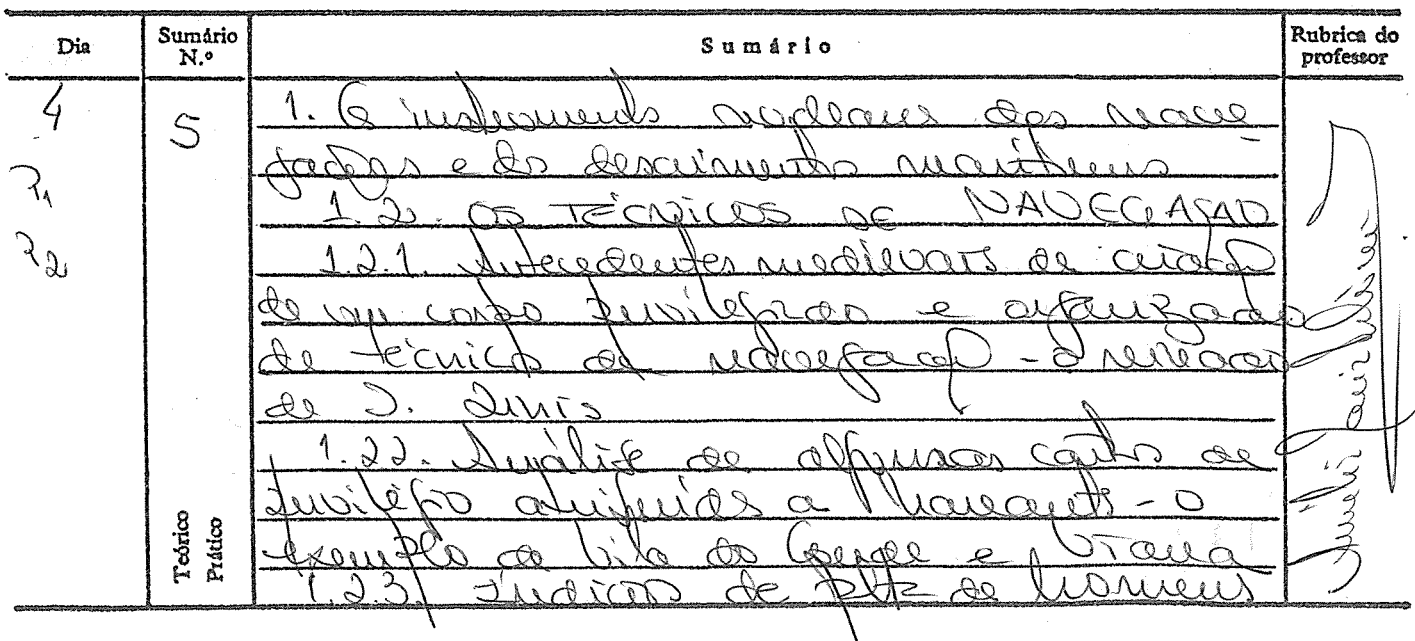 Dia
Sumário N.º
Sumário
Rubrica do professor
4
P1
P2
5
1. Os instrumentos modernos das nave
gações e do descobrimentos marítimos
1.2. OS TÉCNICOS DE NAVEGAÇÃO
1.2.1. Antecedentes medievais da criação
de um corpo privilegiado e organizado
de técnicos de navegação - o reinado
de D. Dinis
1.2.2. Análise de algumas cartas de
privilégio atribuídas a mareantes - o
exemplo de Vila do Conde e Viana
1.2.3. Indícios de falta de homens
Teórico
Prático